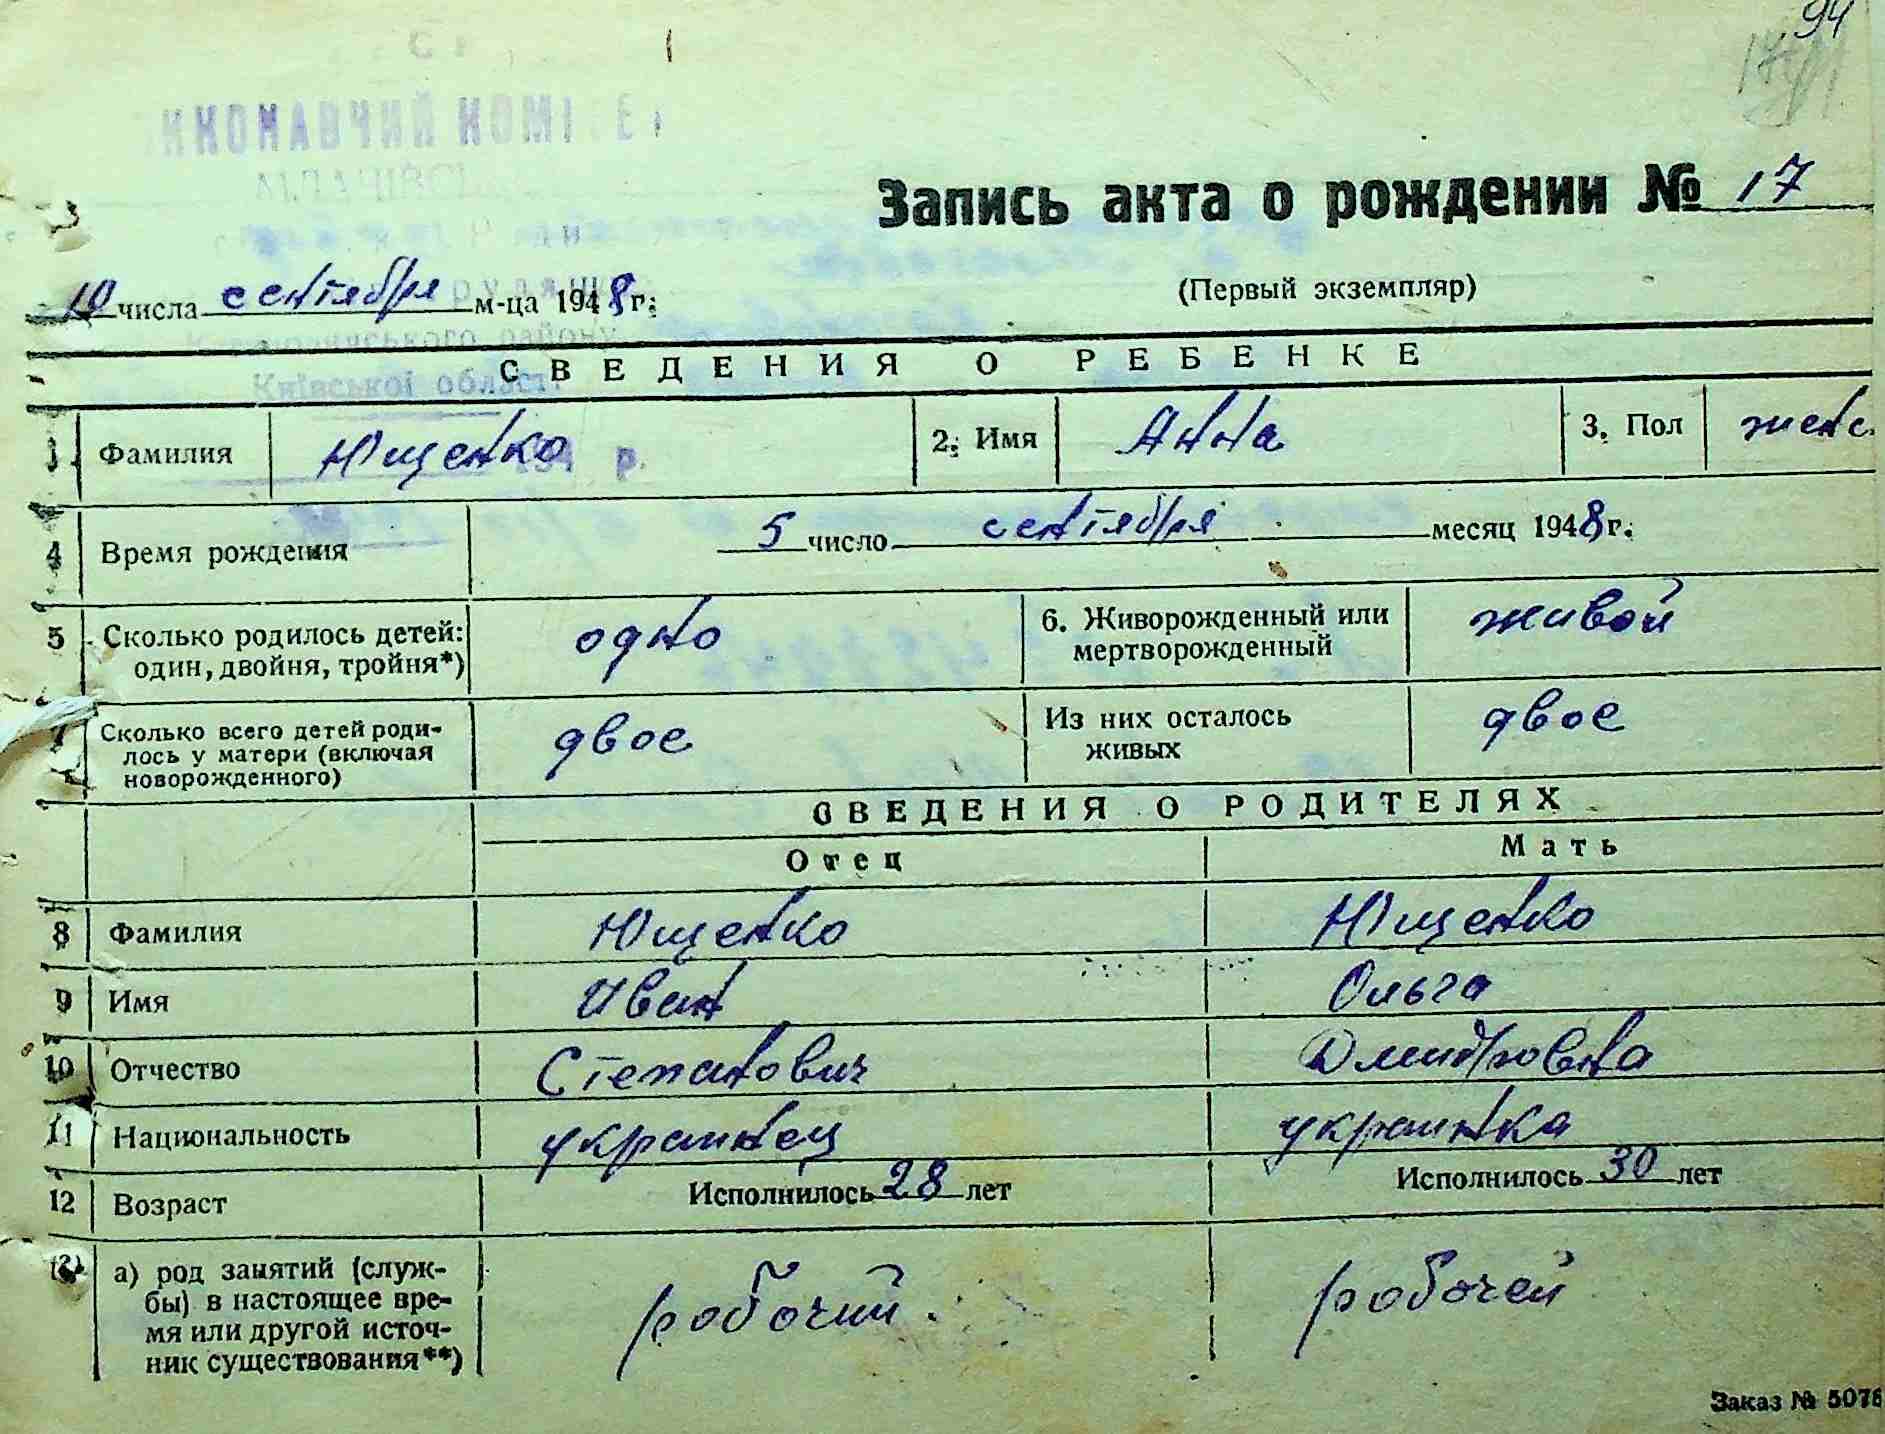 94
Запись акта о рождении № 17
10 числа сентября м-ца 1948 г.
(Первый экземпляр)
СВЕДЕНИЯ О РЕБЕНКЕ
Київської області
1. Фамилия Ющенко 2. Имя Анна 3. Пол женс.
р.
4 Время рождения 5 число сентября месяц 1948 г.
5 Сколько родилось детей: один, двойня, тройня*) одно 6. Живорожденный или мертворожденный живой
7 Сколько всего детей роди-
лось у матери (включая
новорожденного) двое Из них осталось живых двое
СВЕДЕНИЯ О РОДИТЕЛЯХ
Отец Мать
8 Фамилия Ющенко Ющенко
9 Имя Иван Ольга
10 Отчество Степанович Дмитровна
11 Национальность украинец украинка
12 Возраст Исполнилось 28 лет Исполнилось 30 лет
а) род занятий (служ-
бы) в настоящее вре-
мя или другой источ-
ник существования**) робочий робочей
Заказ № 5076